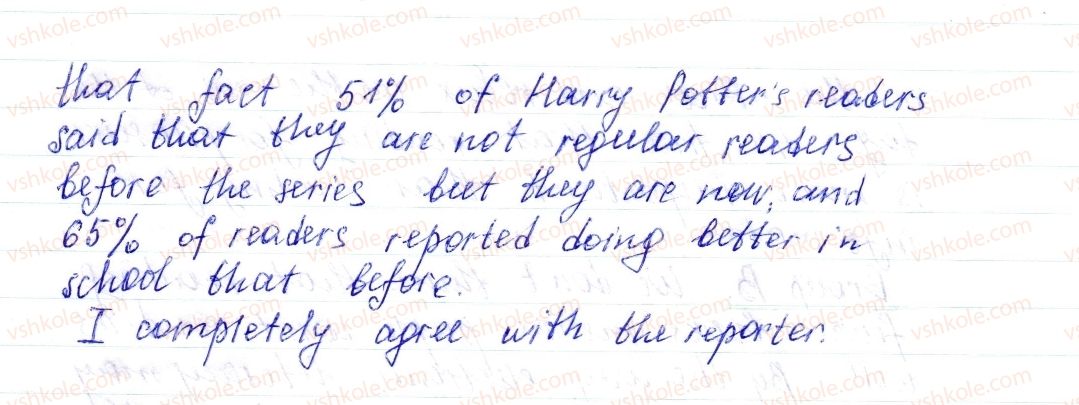 that fact 51% of Harry Potter's readers
said that they are not regular readers
before the series but they are now, and
65% of readers reported doing better in
school that before.
I completely agree with the reporter.